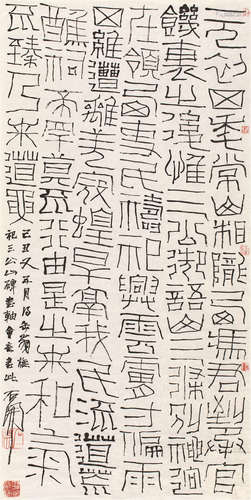 元初四年常山相隴西馮君到官
饑衰之後惟三公御語山條別神迥
在領西吏民禱祀興雲膚寸徧雨
四維遭離羌寇蝗旱鬲我民流道荒
醮祠希罕奠不行由是之來和氣
不臻乃來道要
己丑 月
祀三公山碑